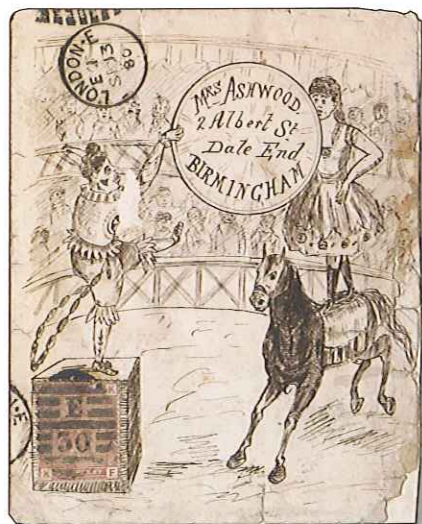 LONDON·E
E J
SJ 3
80
MRS ASHWOOD.
2 Albert St
Dale End
BIRMINGHAM
E
30
K F